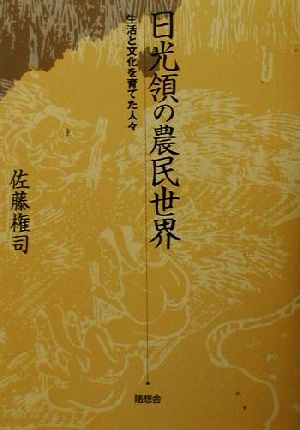 日光領の農民世界
生活と文化を育てた人々
佐藤権司
随想舎